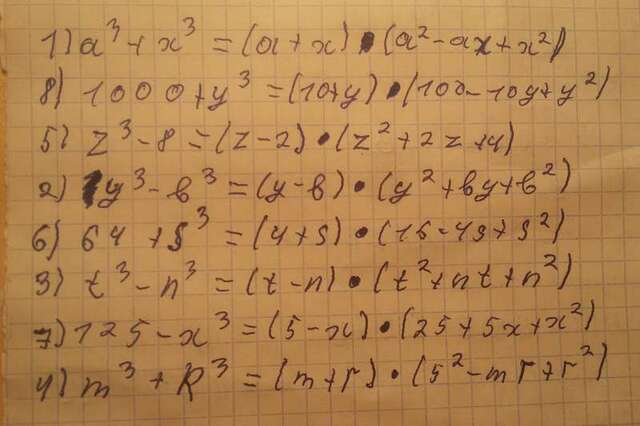 1) a³ + x³ = (a+x) • (a² - ax + x²)
8) 1000 + y³ = (10+y) • (100 - 10y + y²)
5) z³ - 8 = (z-2) • (z² + 2z + 4)
2) y³ - b³ = (y-b) • (y² + by + b²)
6) 64 + s³ = (4+s) • (16 - 4s + s²)
3) t³ - n³ = (t-n) • (t² + nt + n²)
7) 125 - x³ = (5-x) • (25 + 5x + x²)
4) m³ + R³ = (m+r) • (5² - mr + r²)